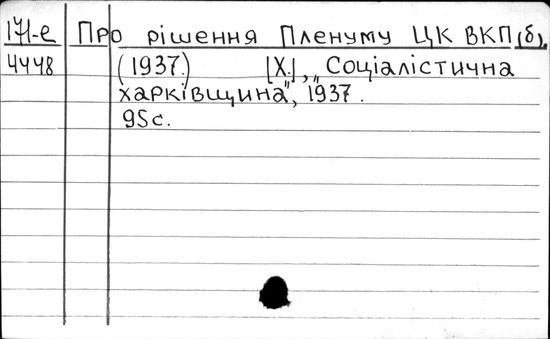 171-е Про рішення Пленуму ЦК ВКП(б).
4448 (1937.) [Х.], „Соціалістична
харківщина", 1937.
95с.